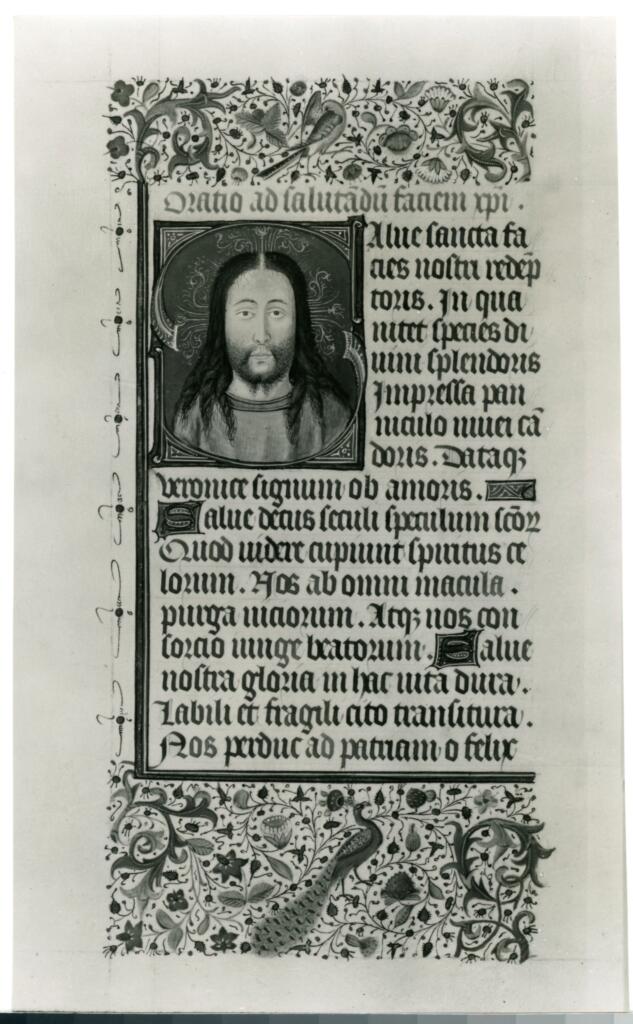 Oratio ad salutādū faciem xp̄i .
Salue sancta fa
cies nostri redēp
toris . In qua
nitet species di
uini splendoris
Impressa pan
niculo niuei cā
doris . Dataqꝫ
veronice signum ob amoris .
Salue decus seculi speculum sc̄oꝝ
Quod uidere cupiunt spiritus ce
lorum . Nos ab omni macula .
purga uiciorum . Atqꝫ nos con
sorcio iunge beatorum . Salue
nostra gloria in hac uita dura .
Labili et fragili cito transitura .
Nos perduc ad patriam o felix